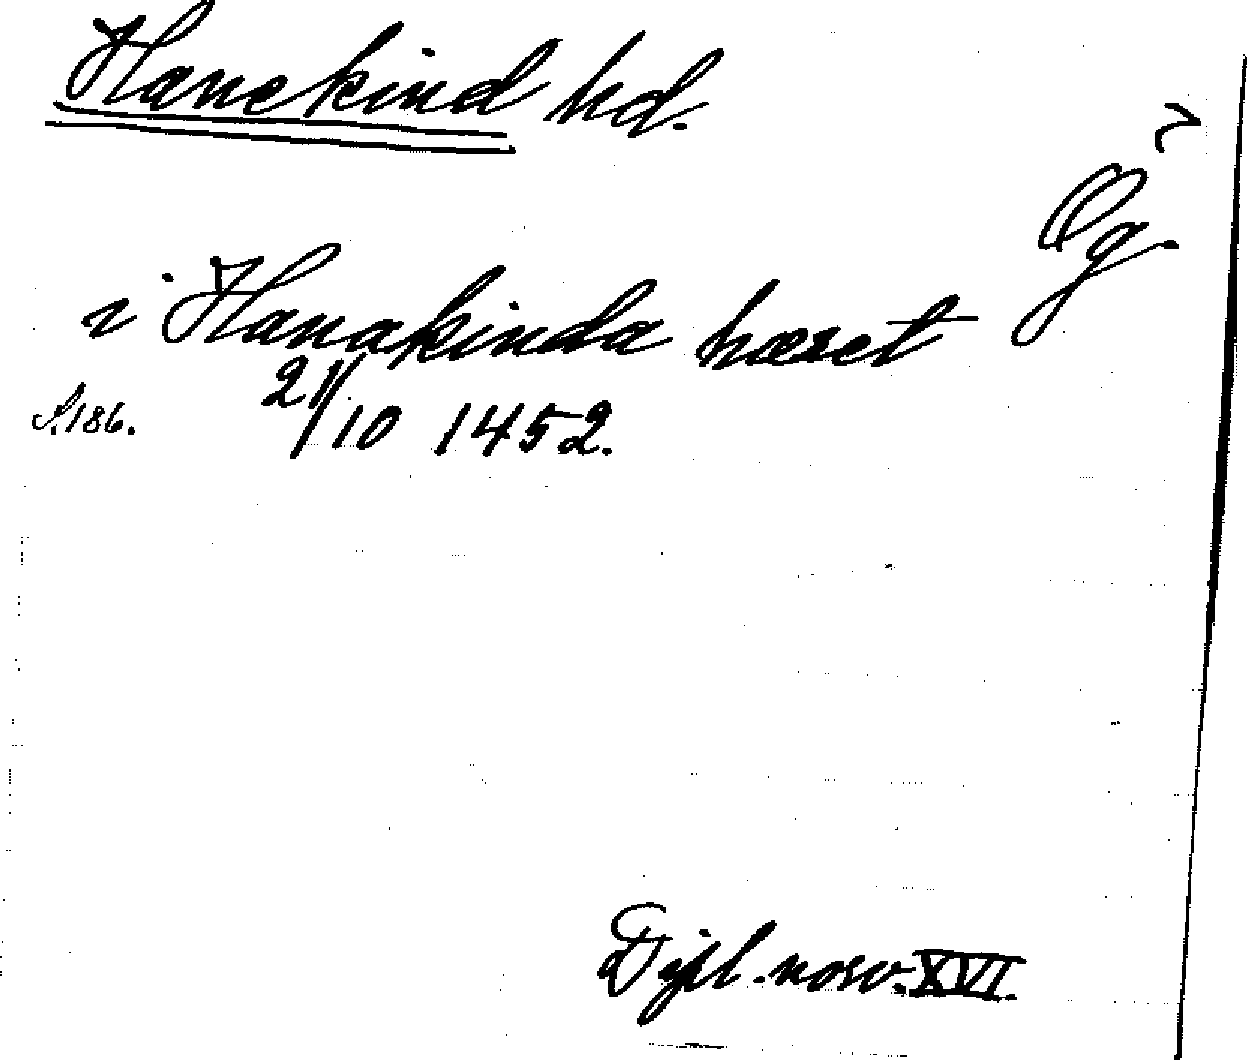 Hanekind hd.
Ög.
i Hanakinda hæret
S. 186. 21/10 1452.
Dipl. norv. XVI.